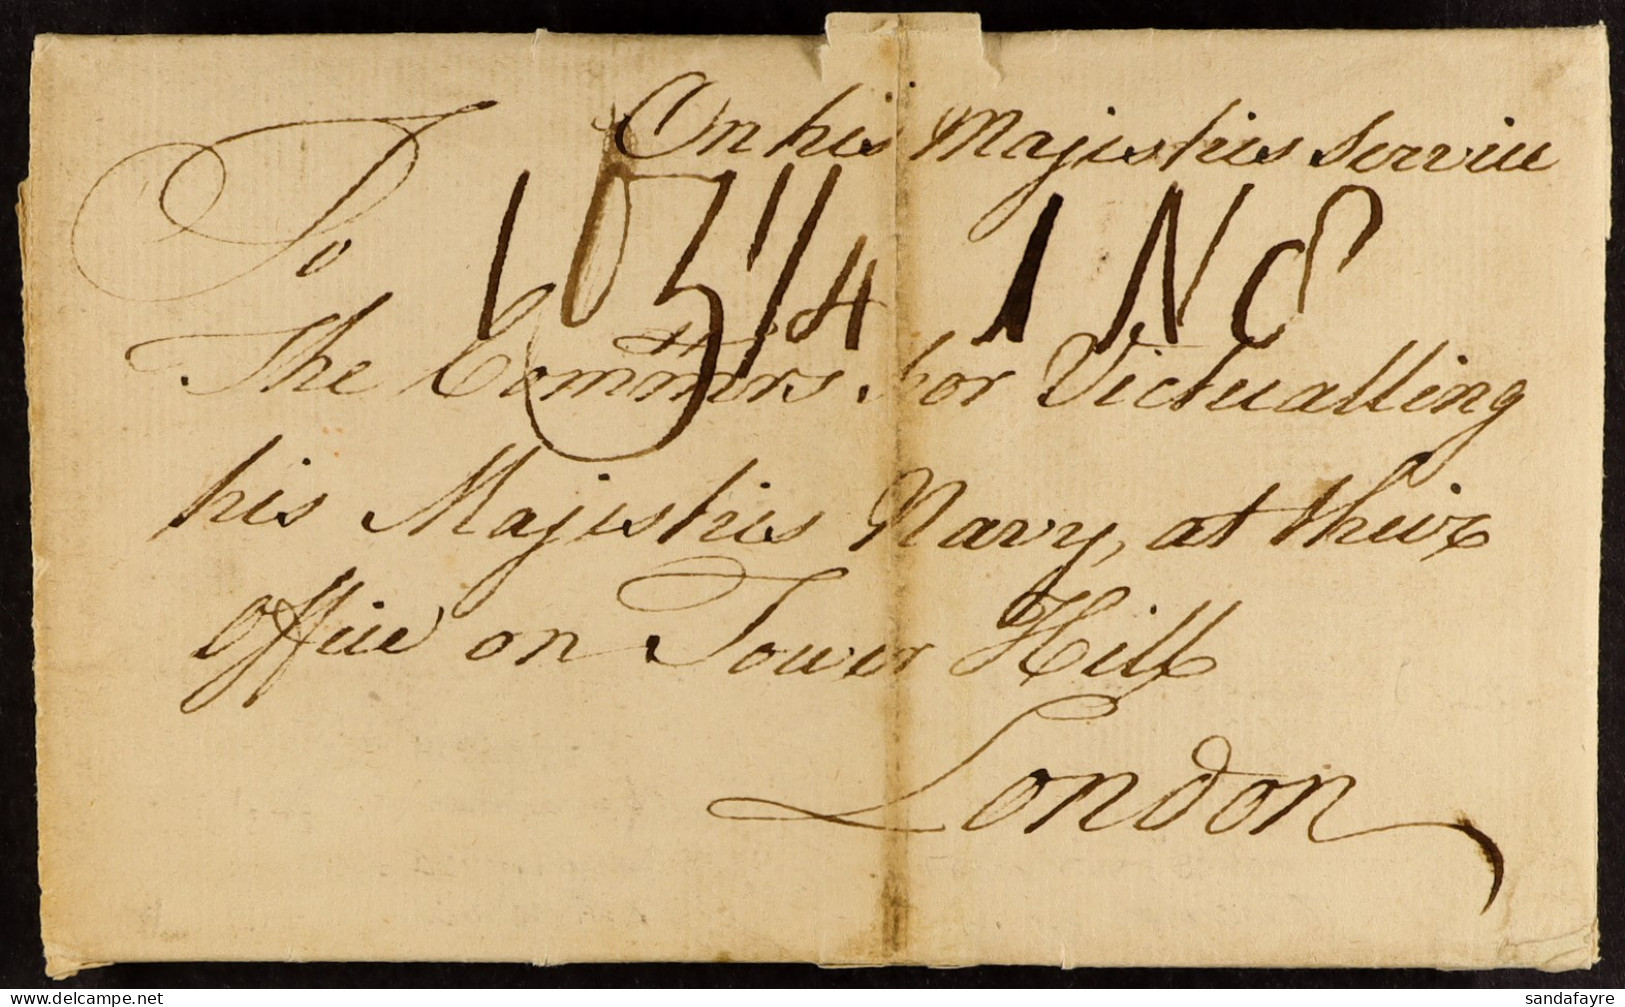 On his Majesties Service
To
The Commrs. for Victualling
his Majesties Navy, at their
Office on Tower Hill
London
www.delcampe.net
sandafayre